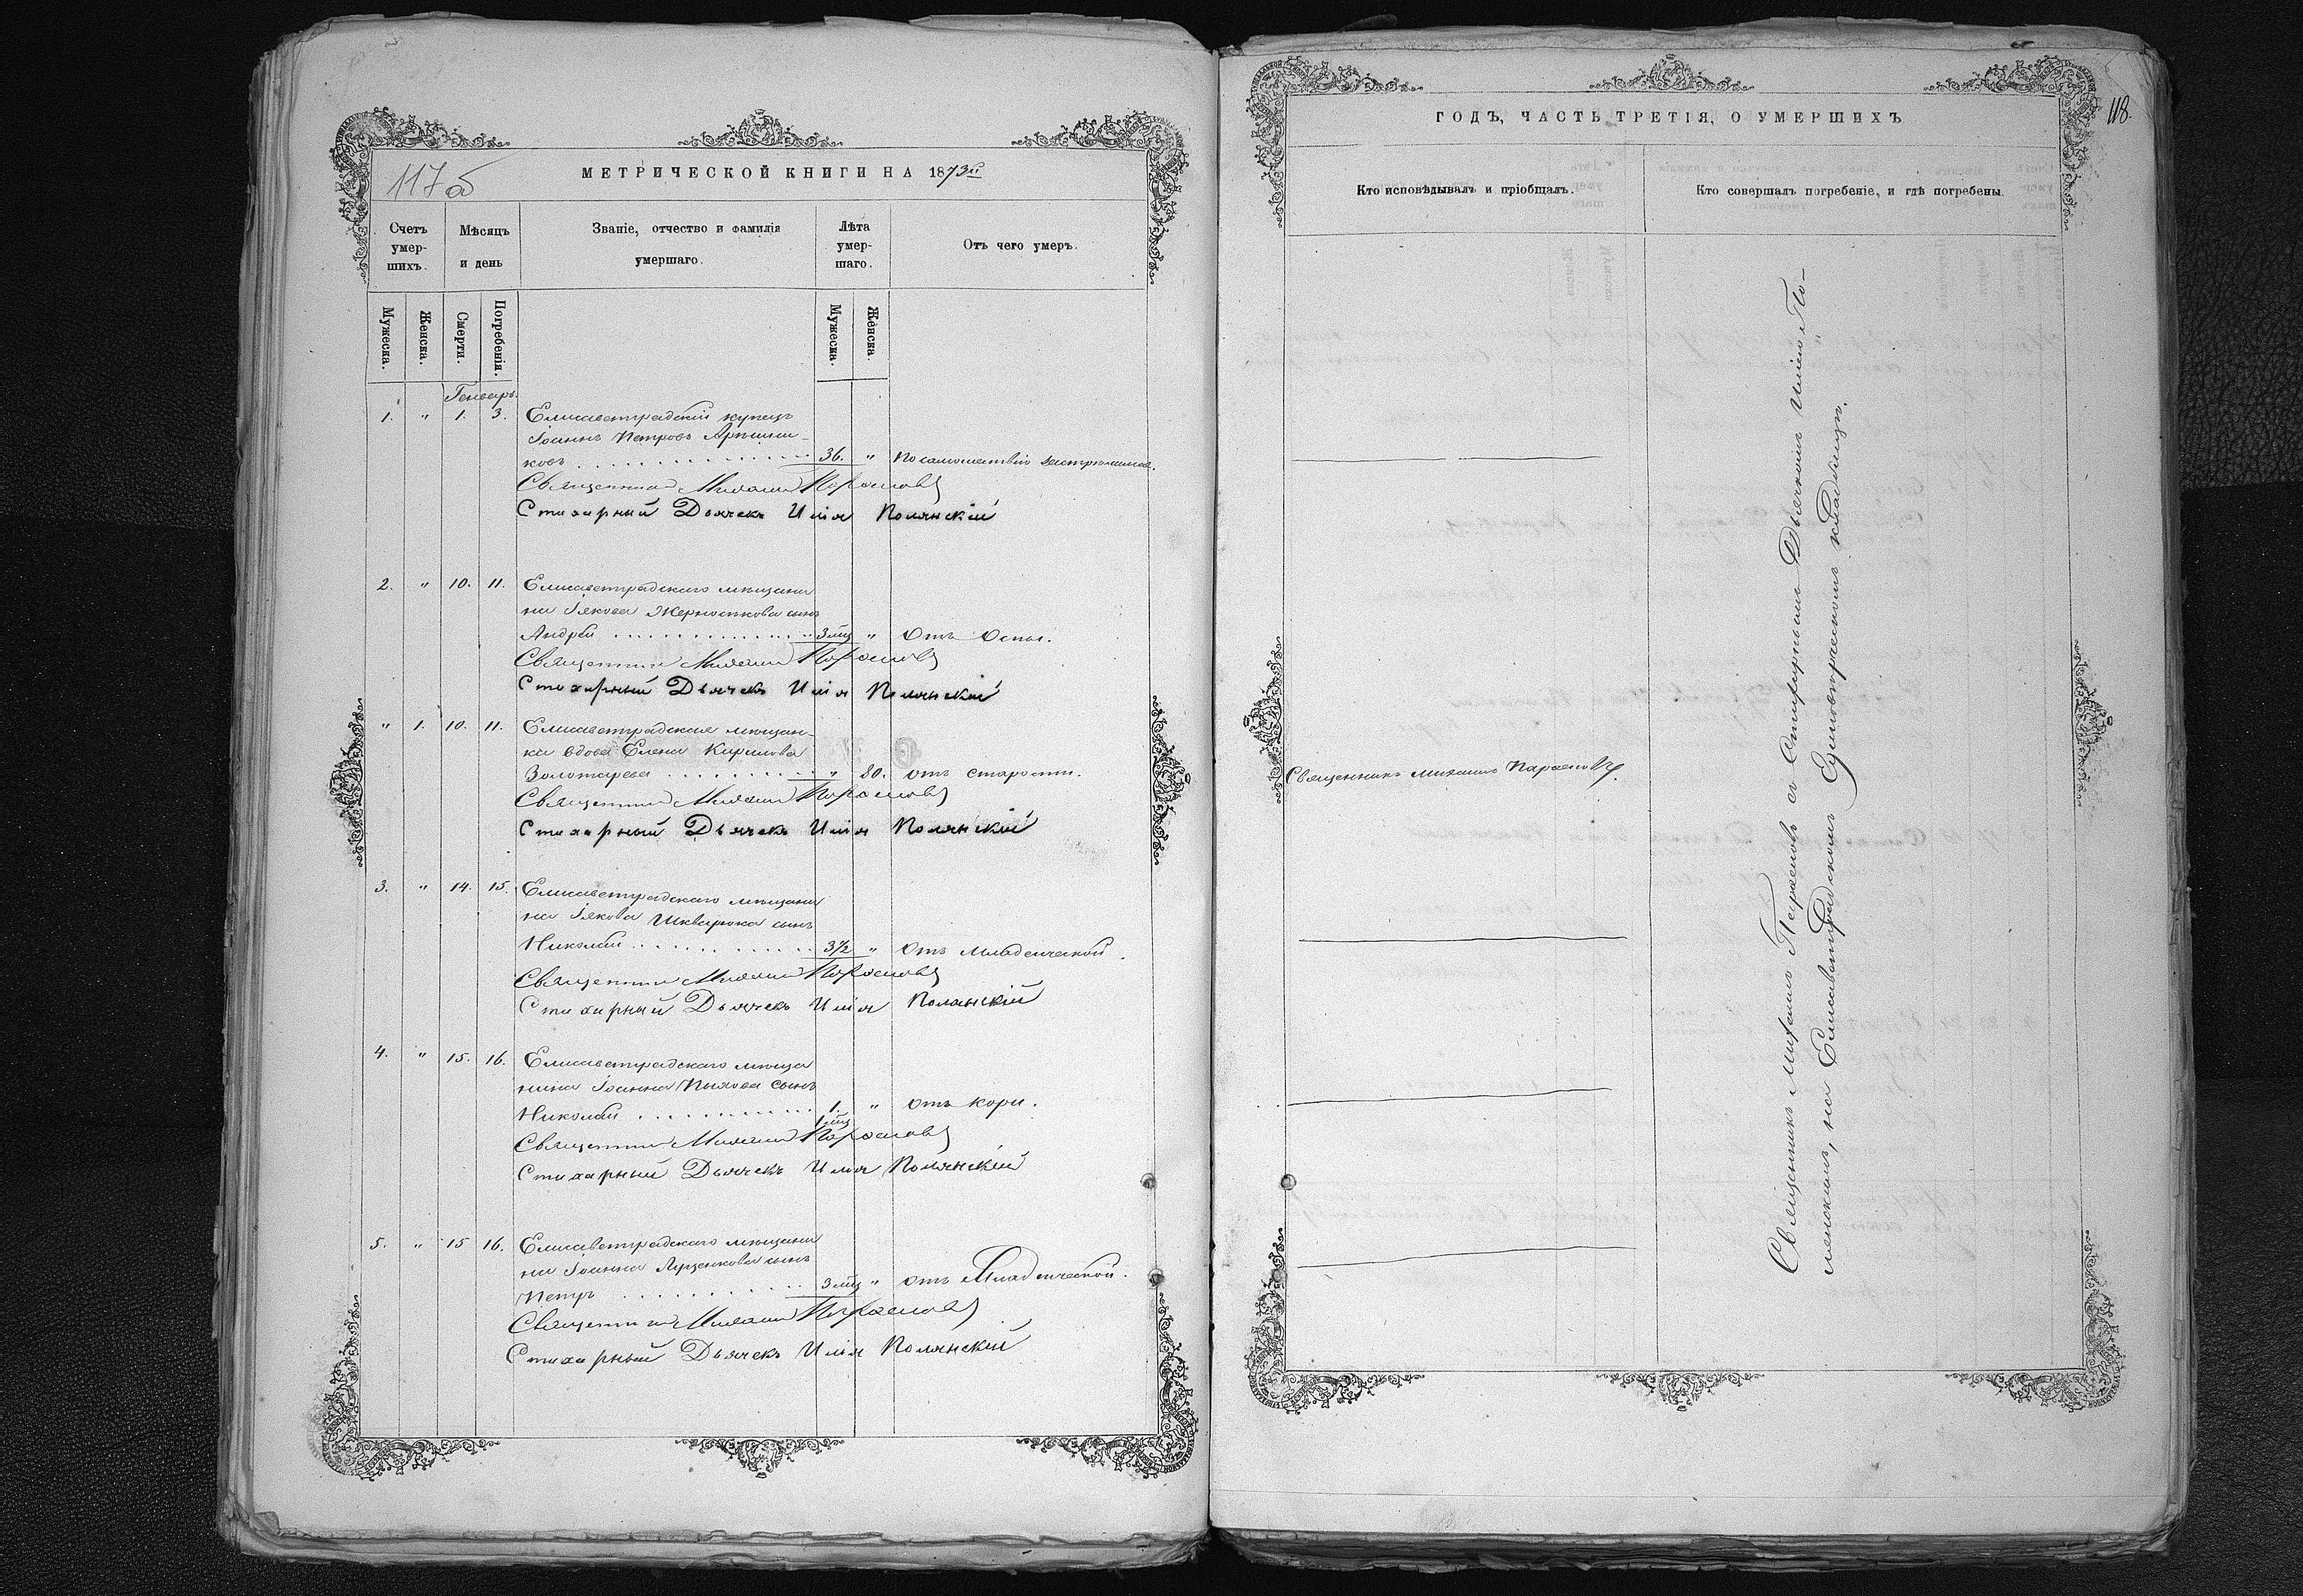 117об
МЕТРИЧЕСКОЙ КНИГИ НА 1873й
Счетъ умер-шихъ.
Мѣсяцъ и день
Званіе, отчество и фамилія умершаго.
Лѣта умер-шаго.
Отъ чего умеръ.
Мужеска.
Женска.
Смерти.
Погребенія.
Мужеска.
Женска.
Генварь.
1. " 1. 3. Елисаветградскій купецъ
Іоаннъ Петровъ
ковъ 36. "
Священникъ Михаилъ Парасновъ
Стихарный Дьячекъ Илія Полянскій
2. " 10. 11. Елисаветградскаго мѣщани
на Іякова сынъ
Андрей 3 мц " Отъ Оспы.
Священникъ Михаилъ Парасновъ
Стихарный Дьячекъ Илія Полянскій
" 1. 10. 11. Елисаветградская мѣщан-
ка вдова Елена Кирилова
Золотарева " 80. отъ старости.
Священникъ Михаилъ Парасновъ
Стихарный Дьячекъ Илія Полянскій
3. " 14. 15. Елисаветградскаго мѣщани
на Іякова Шкварюка сынъ
Николай 3½ " Отъ Младенческой.
Священникъ Михаилъ Парасновъ
Стихарный Дьячекъ Илія Полянскій
4. " 15. 16. Елисаветградскаго мѣща
нина Іоанна сынъ
Николай 1. " Отъ кори.
1 мц
Священникъ Михаилъ Парасновъ
Стихарный Дьячекъ Илія Полянскій
5. " 15 16. Елисаветградскаго мѣщани
на Іоанна Луценкова сынъ
Петръ 3 мц " отъ Младенческой.
Священникъ Михаилъ Парасновъ
Стихарный Дьячекъ Илія Полянскій
118.
ГОДЪ, ЧАСТЬ ТРЕТІЯ, О УМЕРШИХЪ
Кто исповѣдывалъ и пріобщалъ.
Кто совершалъ погребеніе, и гдѣ погребены.
Священникъ Михаилъ Парасновъ.
Священникъ Михаилъ Парасновъ съ Стихарнымъ Дьячкомъ Иліею По-
лянскимъ, на Елисаветградскомъ Единовѣрческомъ кладбищѣ.